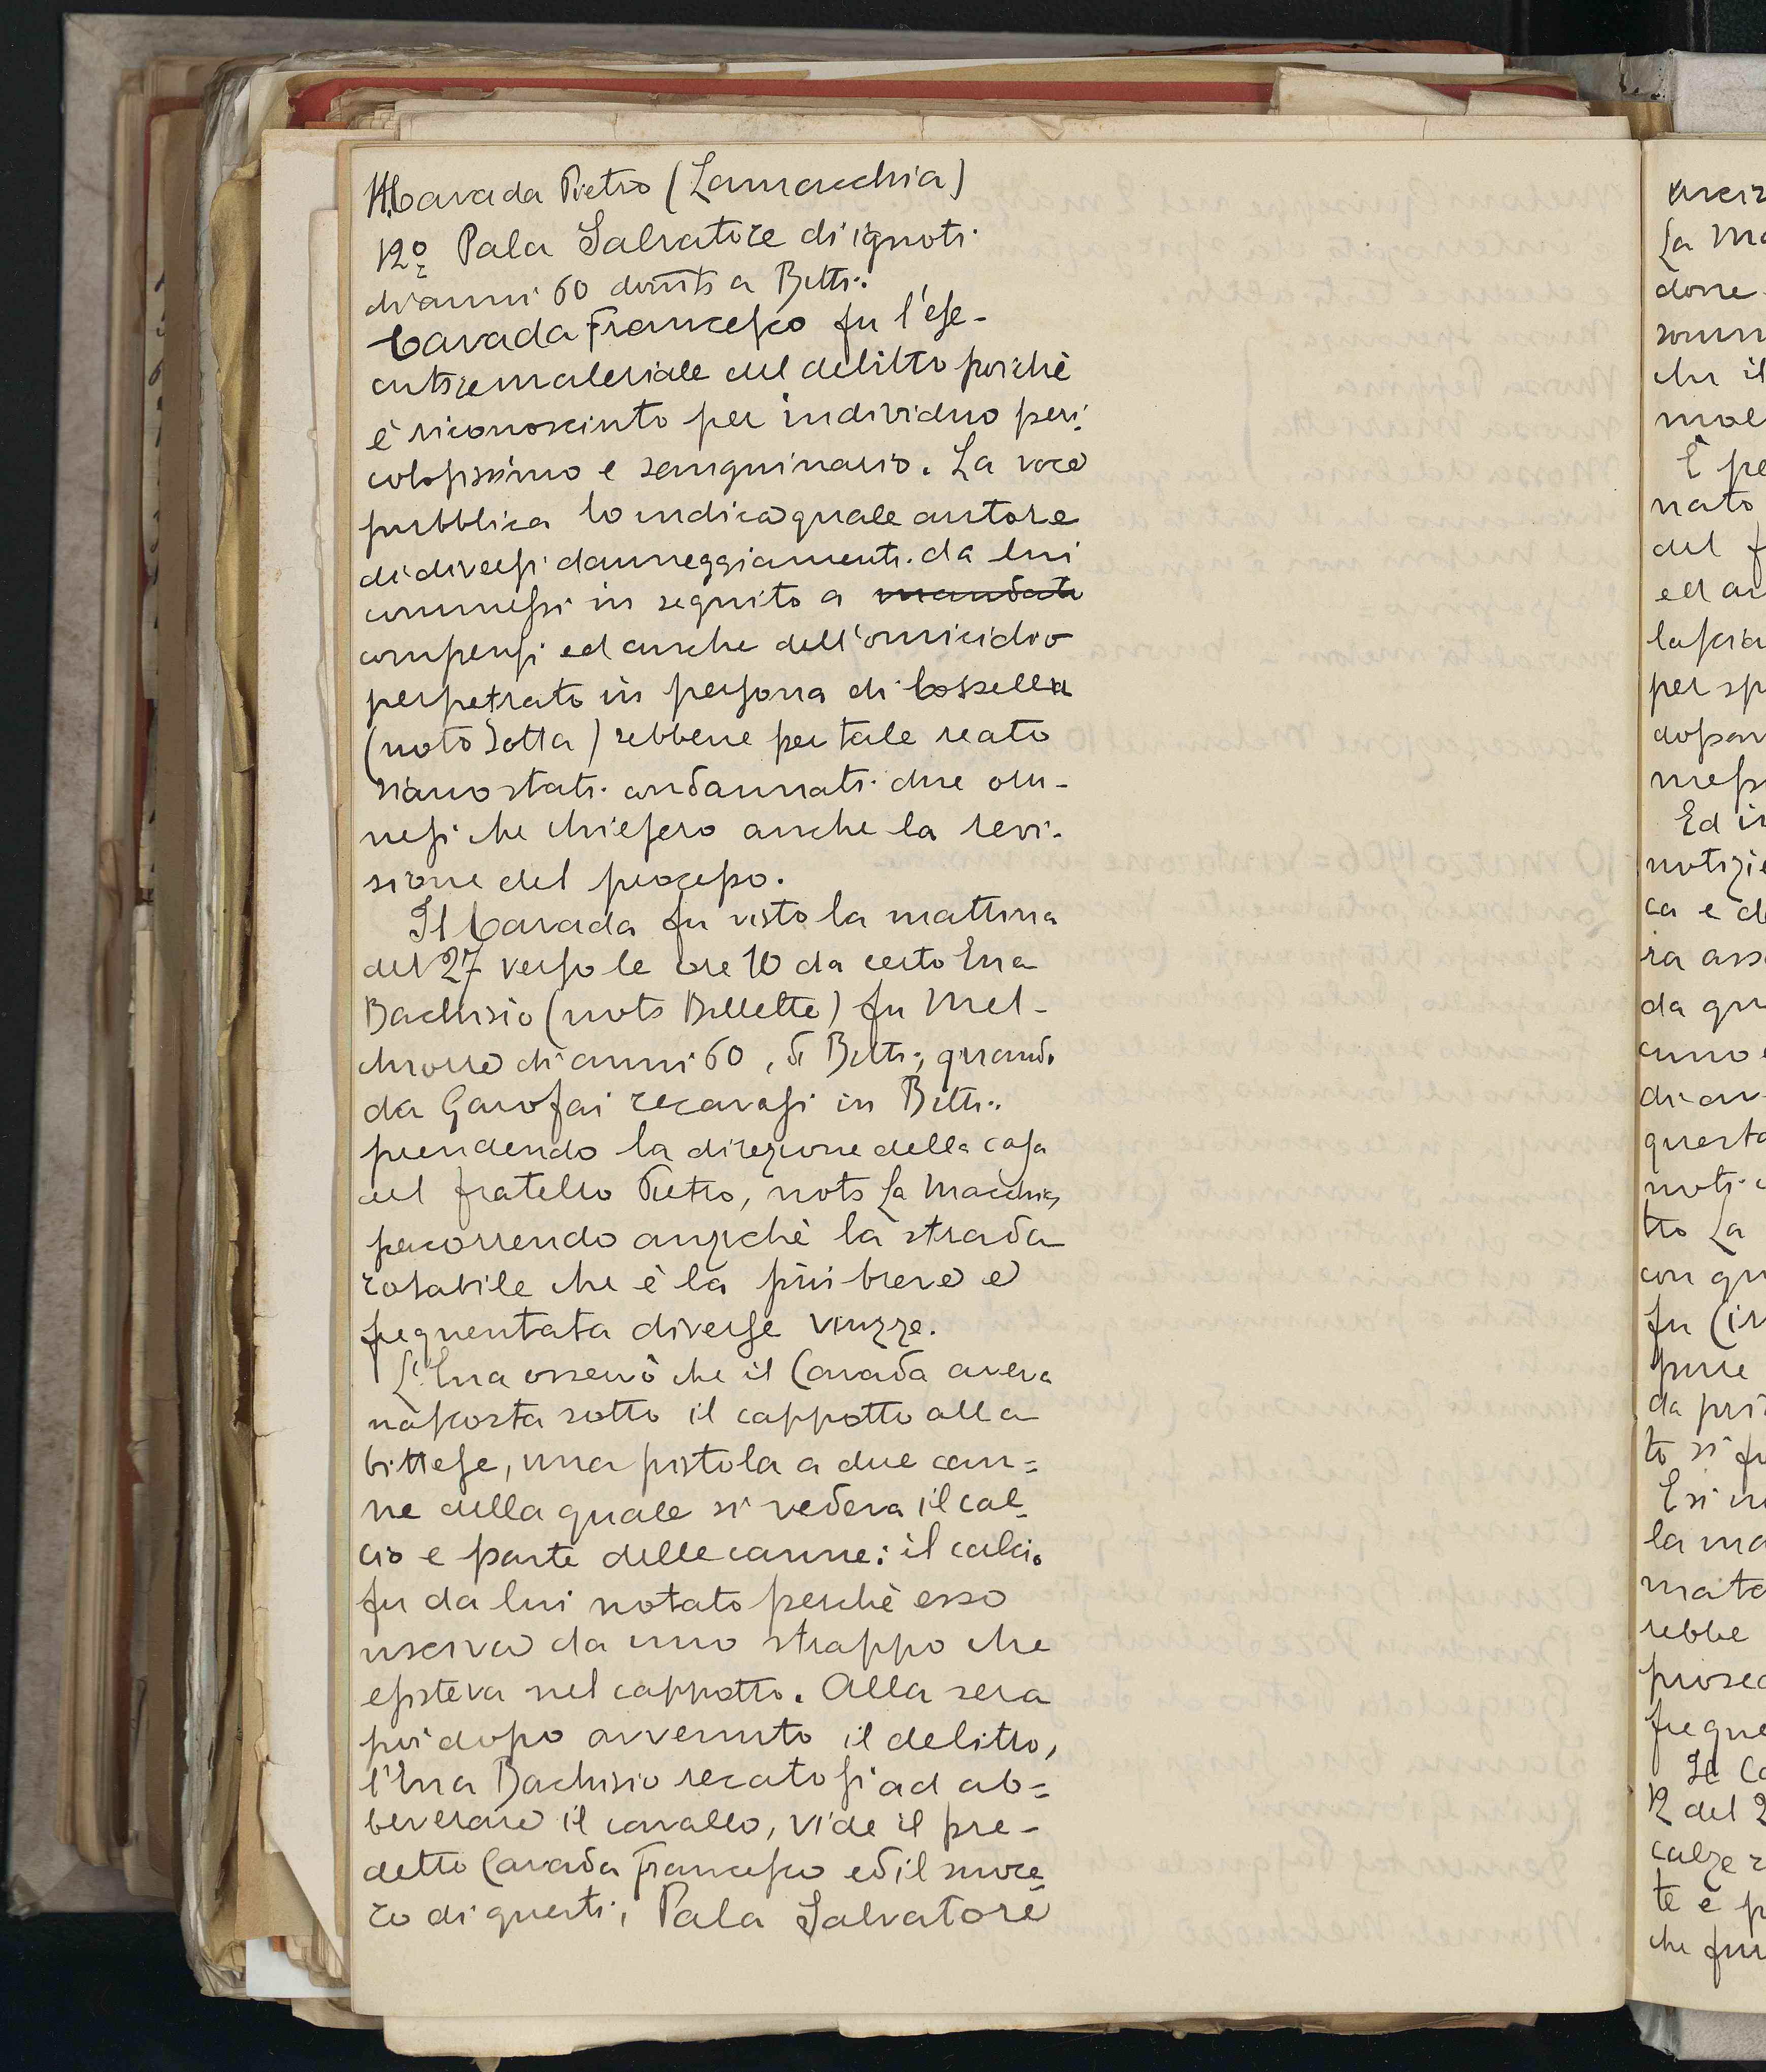 11. Cavada Pietro (Lamacchia)
12º Pala Salvatore di ignoti
di anni 60 domto a Bitti.
Cavada Francesco fu l'ese-
cutore materiale del delitto poichè
è riconosciuto per individuo peri-
colosissimo e sanguinario. La voce
pubblica lo indica quale autore
di diversi danneggiamenti da lui
commessi in seguito a mandato
compensi ed anche dell'omicidio
perpetrato in persona di Cossellu
(noto Sotta) sebbene per tale reato
siano stati condannati due olu-
nesi che chiesero anche la revi-
sione del processo.
Il Cavada fu visto la mattina
del 27 verso le ore 10 da certo Ena
Bachisio (noto Bellette) fu Mel-
chiorre di anni 60, di Bitti, quando
da Garofai recavasi in Bitti.
prendendo la direzione della casa
del fratello Pietro, noto La Macchia,
percorrendo anzichè la strada
rotabile che è la più breve e
frequentata diverse viuzze.
L'Ena osservò che il Cavada aveva
nascosta sotto il cappotto alla
bittese, una pistola a due can=
ne della quale si vedeva il cal-
cio e parte delle canne: il calcio
fu da lui notato perchè esso
usciva da uno strappo che
esisteva nel cappotto. Alla sera
poi dopo avvenuto il delitto,
l'Ena Bachisio recatosi ad ab=
beverare il cavallo, vide il pre-
detto Cavada Francesco ed il suoce-
ro di questi, Pala Salvatore
La
dosse
che il
nato
del
per sp
Ed
ca e d
ra
da
questa
tro La
con
fu
pure
da
to si
la
rebbe
Il
12 del 2
te e p
che